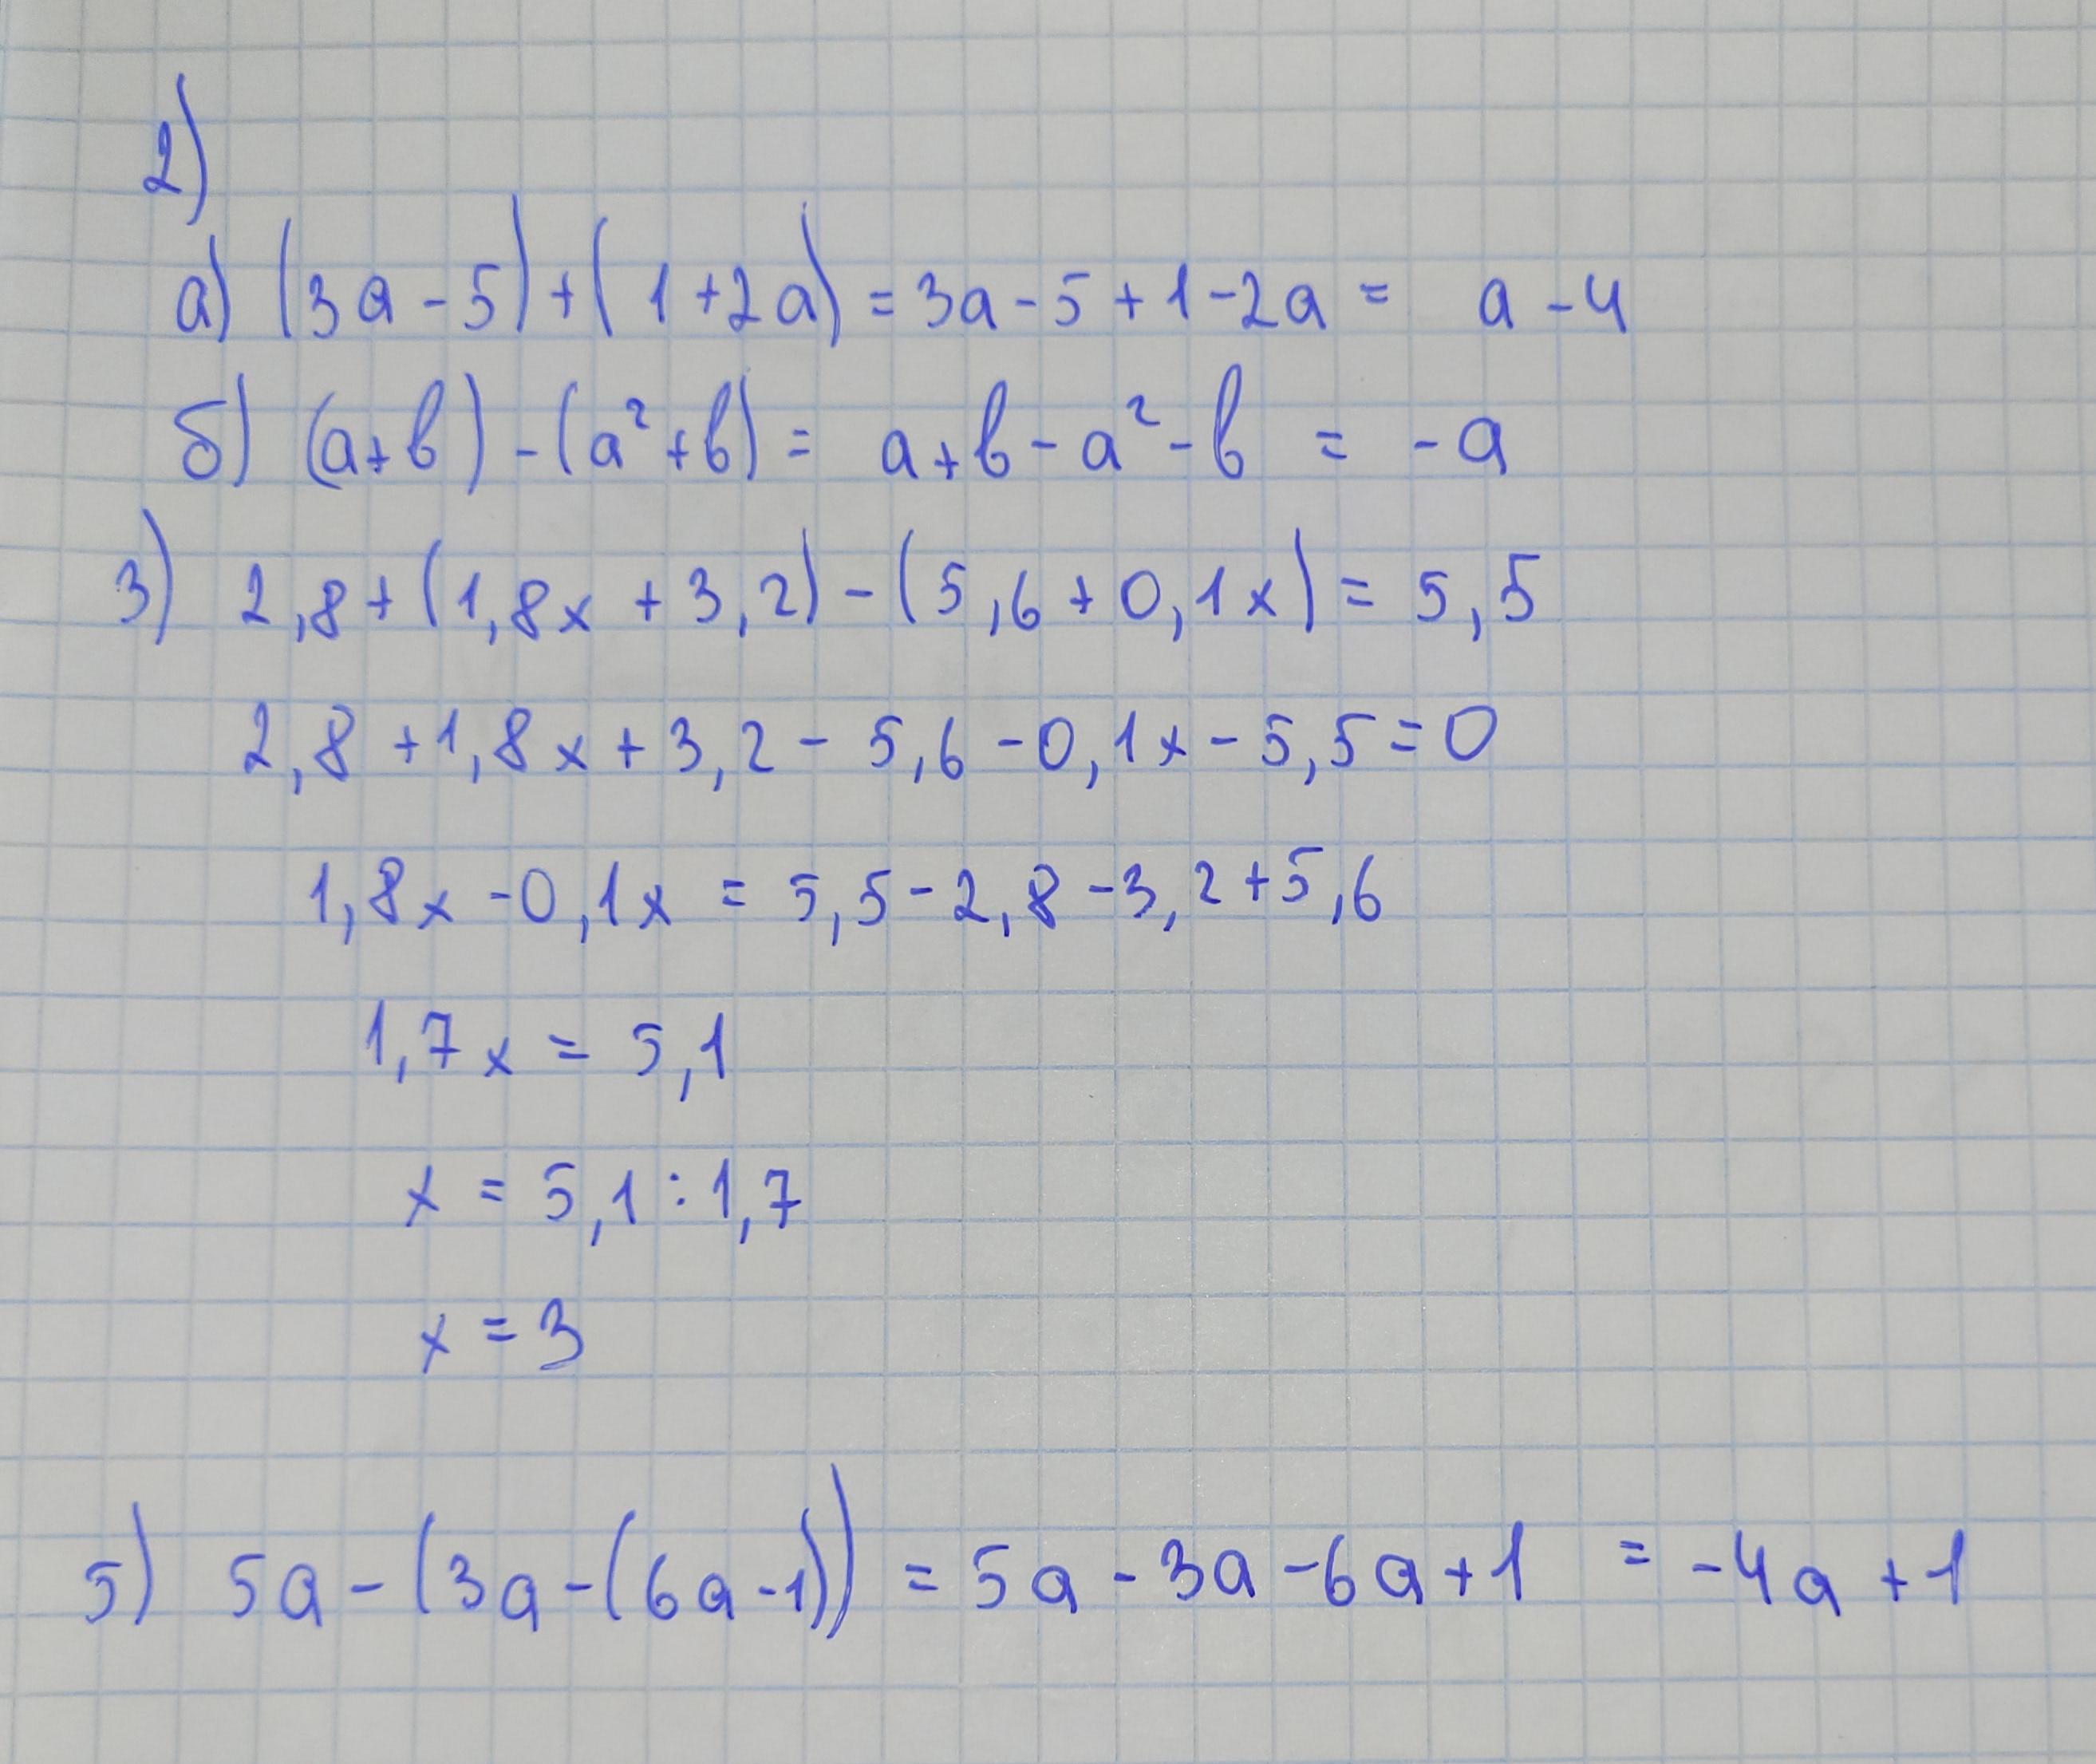 2)
а) (3a - 5) + (1 + 2a) = 3a - 5 + 1 - 2a = a - 4
б) (a + b) - (a² + b) = a + b - a² - b = - a
3) 2,8 + (1,8x + 3,2) - (5,6 + 0,1x) = 5,5
2,8 + 1,8x + 3,2 - 5,6 - 0,1x - 5,5 = 0
1,8x - 0,1x = 5,5 - 2,8 - 3,2 + 5,6
1,7x = 5,1
x = 5,1 : 1,7
x = 3
5) 5a - (3a - (6a - 1)) = 5a - 3a - 6a + 1 = -4a + 1